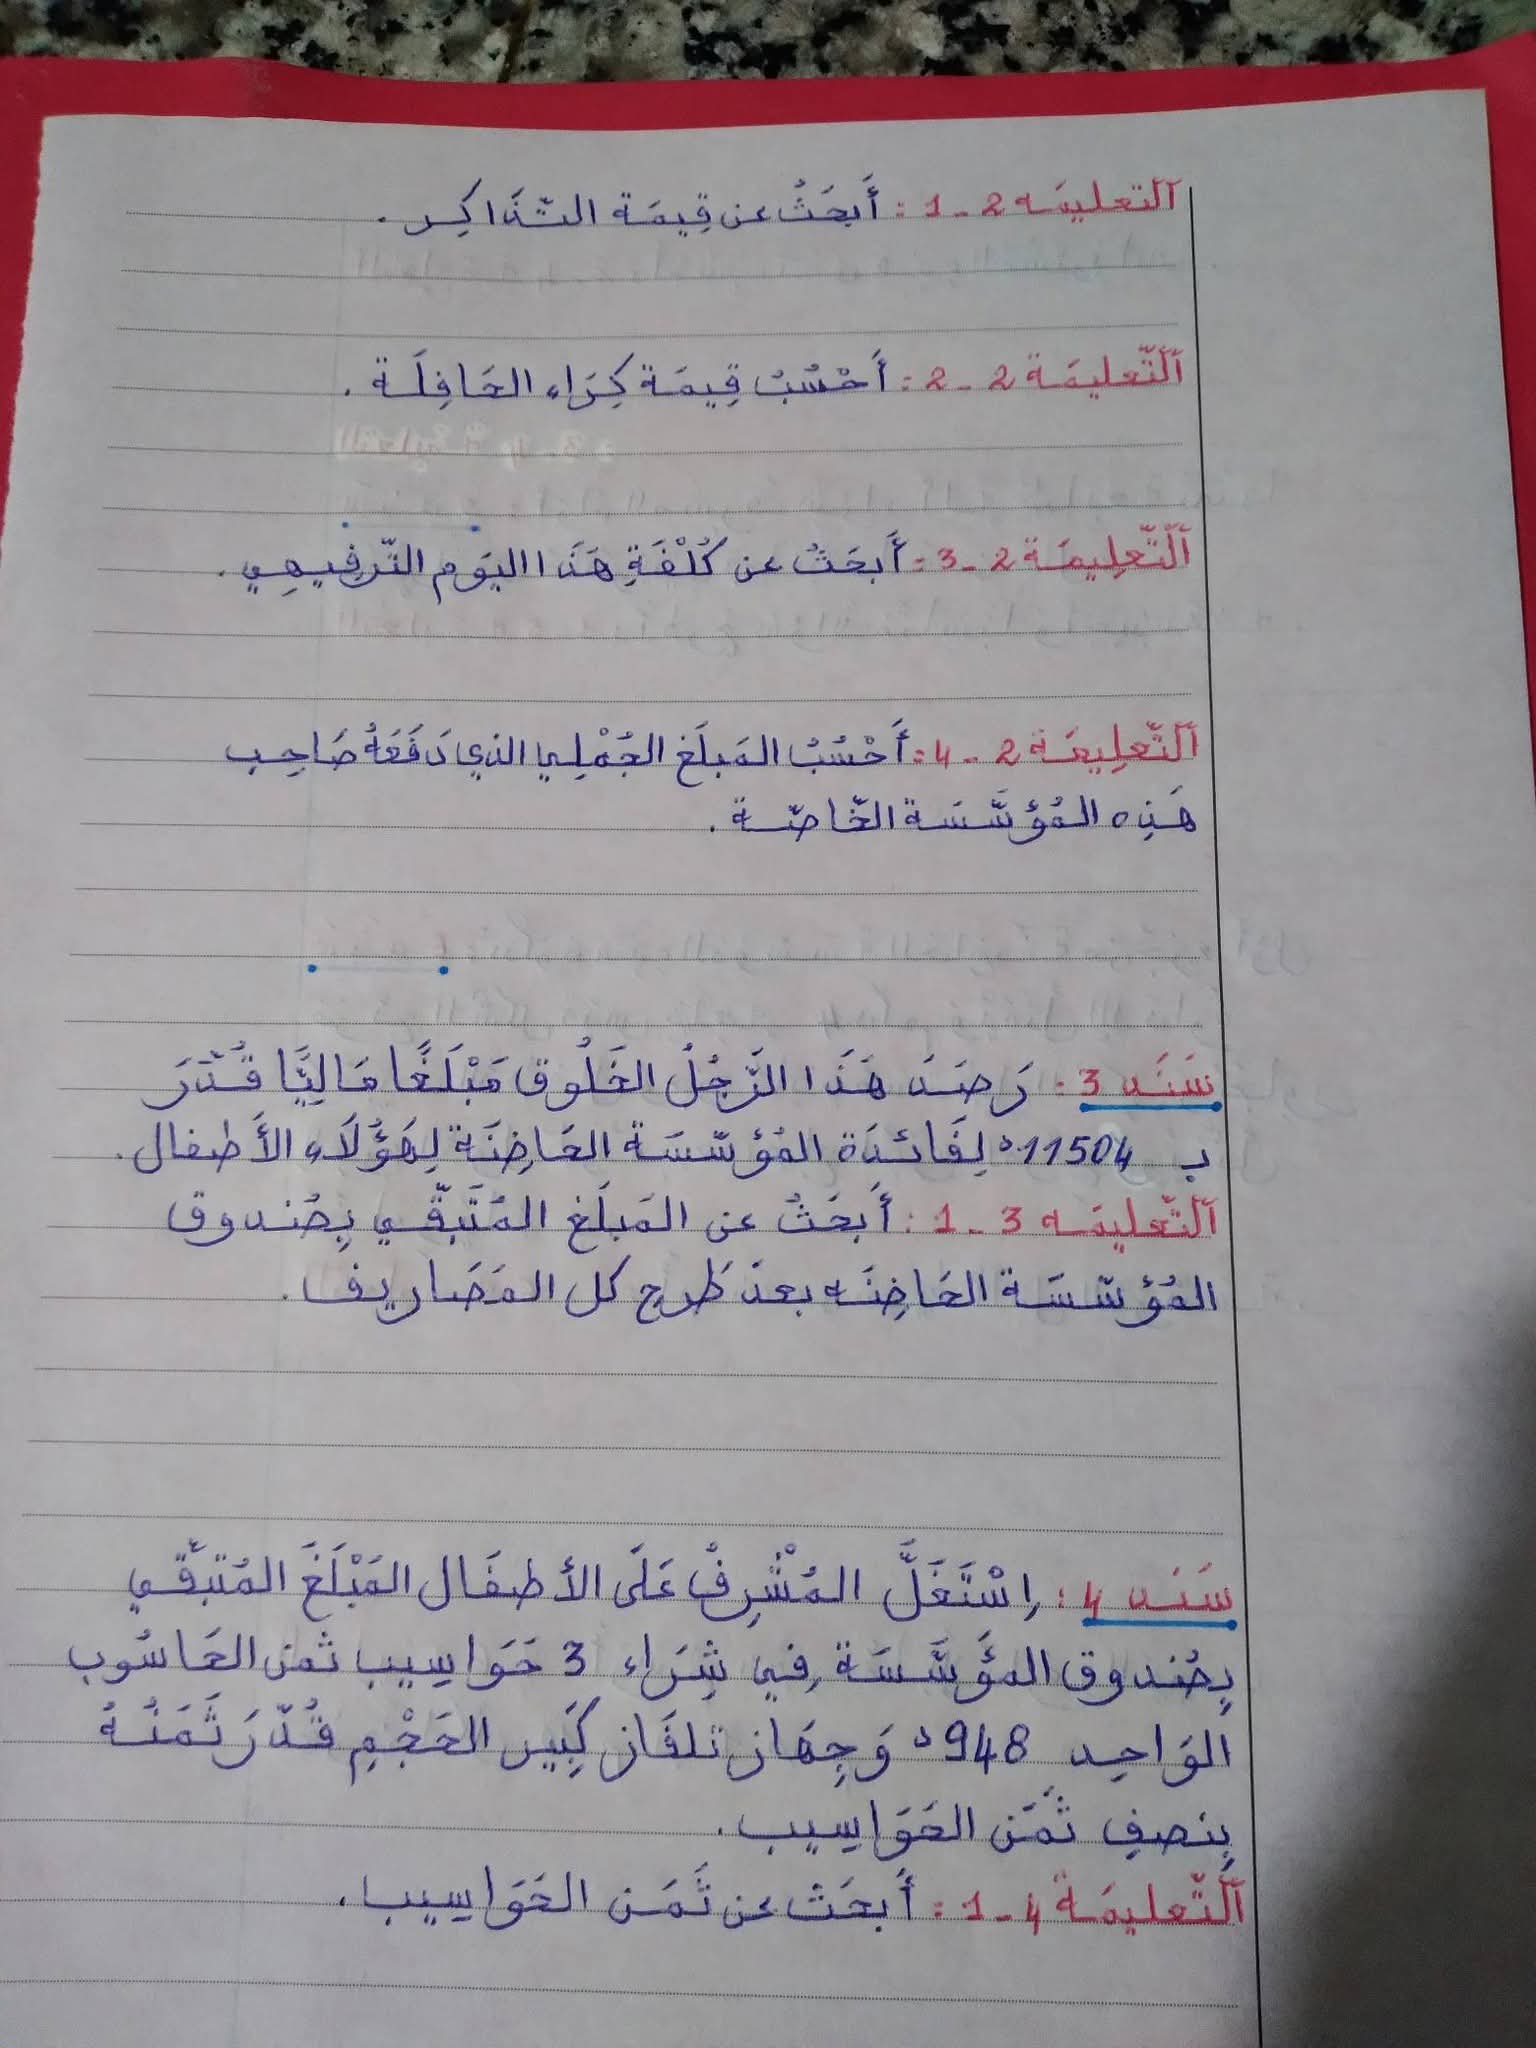 التعليمة 2-1: أَبحَثُ عن قِيمَة التّذَاكِر.
التّعليمَة 2-2: أَحْسُبُ قِيمَة كِرَاء الحَافِلَة.
التّعلِيمَة 2-3: أَبحَثُ عن كُلْفَةِ هَذَا اليَوم التّرفِيهِي.
التّعلِيمَة 2-4: أَحْسُبُ المَبلَغ الجُمْلِي الذي دَفَعَهُ صَاحِب
هَذِه المُؤَسَّسَة الخَّاصّة.
سَنَد 3: رَصَدَ هَذَا الرَّجُلُ الخَلُوق مَبْلَغًا مَالِيًّا قُدّرَ
بـ 11504د لِفَائدَة المُؤسّسَة الحَاضِنَة لِهَؤُلَاء الأَطفال.
التّعليمَة 3-1: أَبحَثُ عن المَبلَغ المُتَبقّي بِصُندوق
المُؤسّسَة الحَاضِنَة بعدَ طَرح كل المَصَاريف.
سَنَد 4: اِسْتَغَلَّ المُشْرِفُ عَلَى الأطفَال المَبْلَغَ المُتبَقّي
بِصُندوق المؤَسَّسَة فِي شِرَاء 3 حَوَاسِيب ثمن الحَاسُوب
الوَاحِد 948د وَجِهَاز تلفَاز كَبِير الحَجْمِ قُدّرَ ثَمَنُهُ
بِنصفِ ثَمَن الحَوَاسِيب.
التّعليمَة 4-1: أَبحَث عن ثَمَن الحَوَاسِيب.